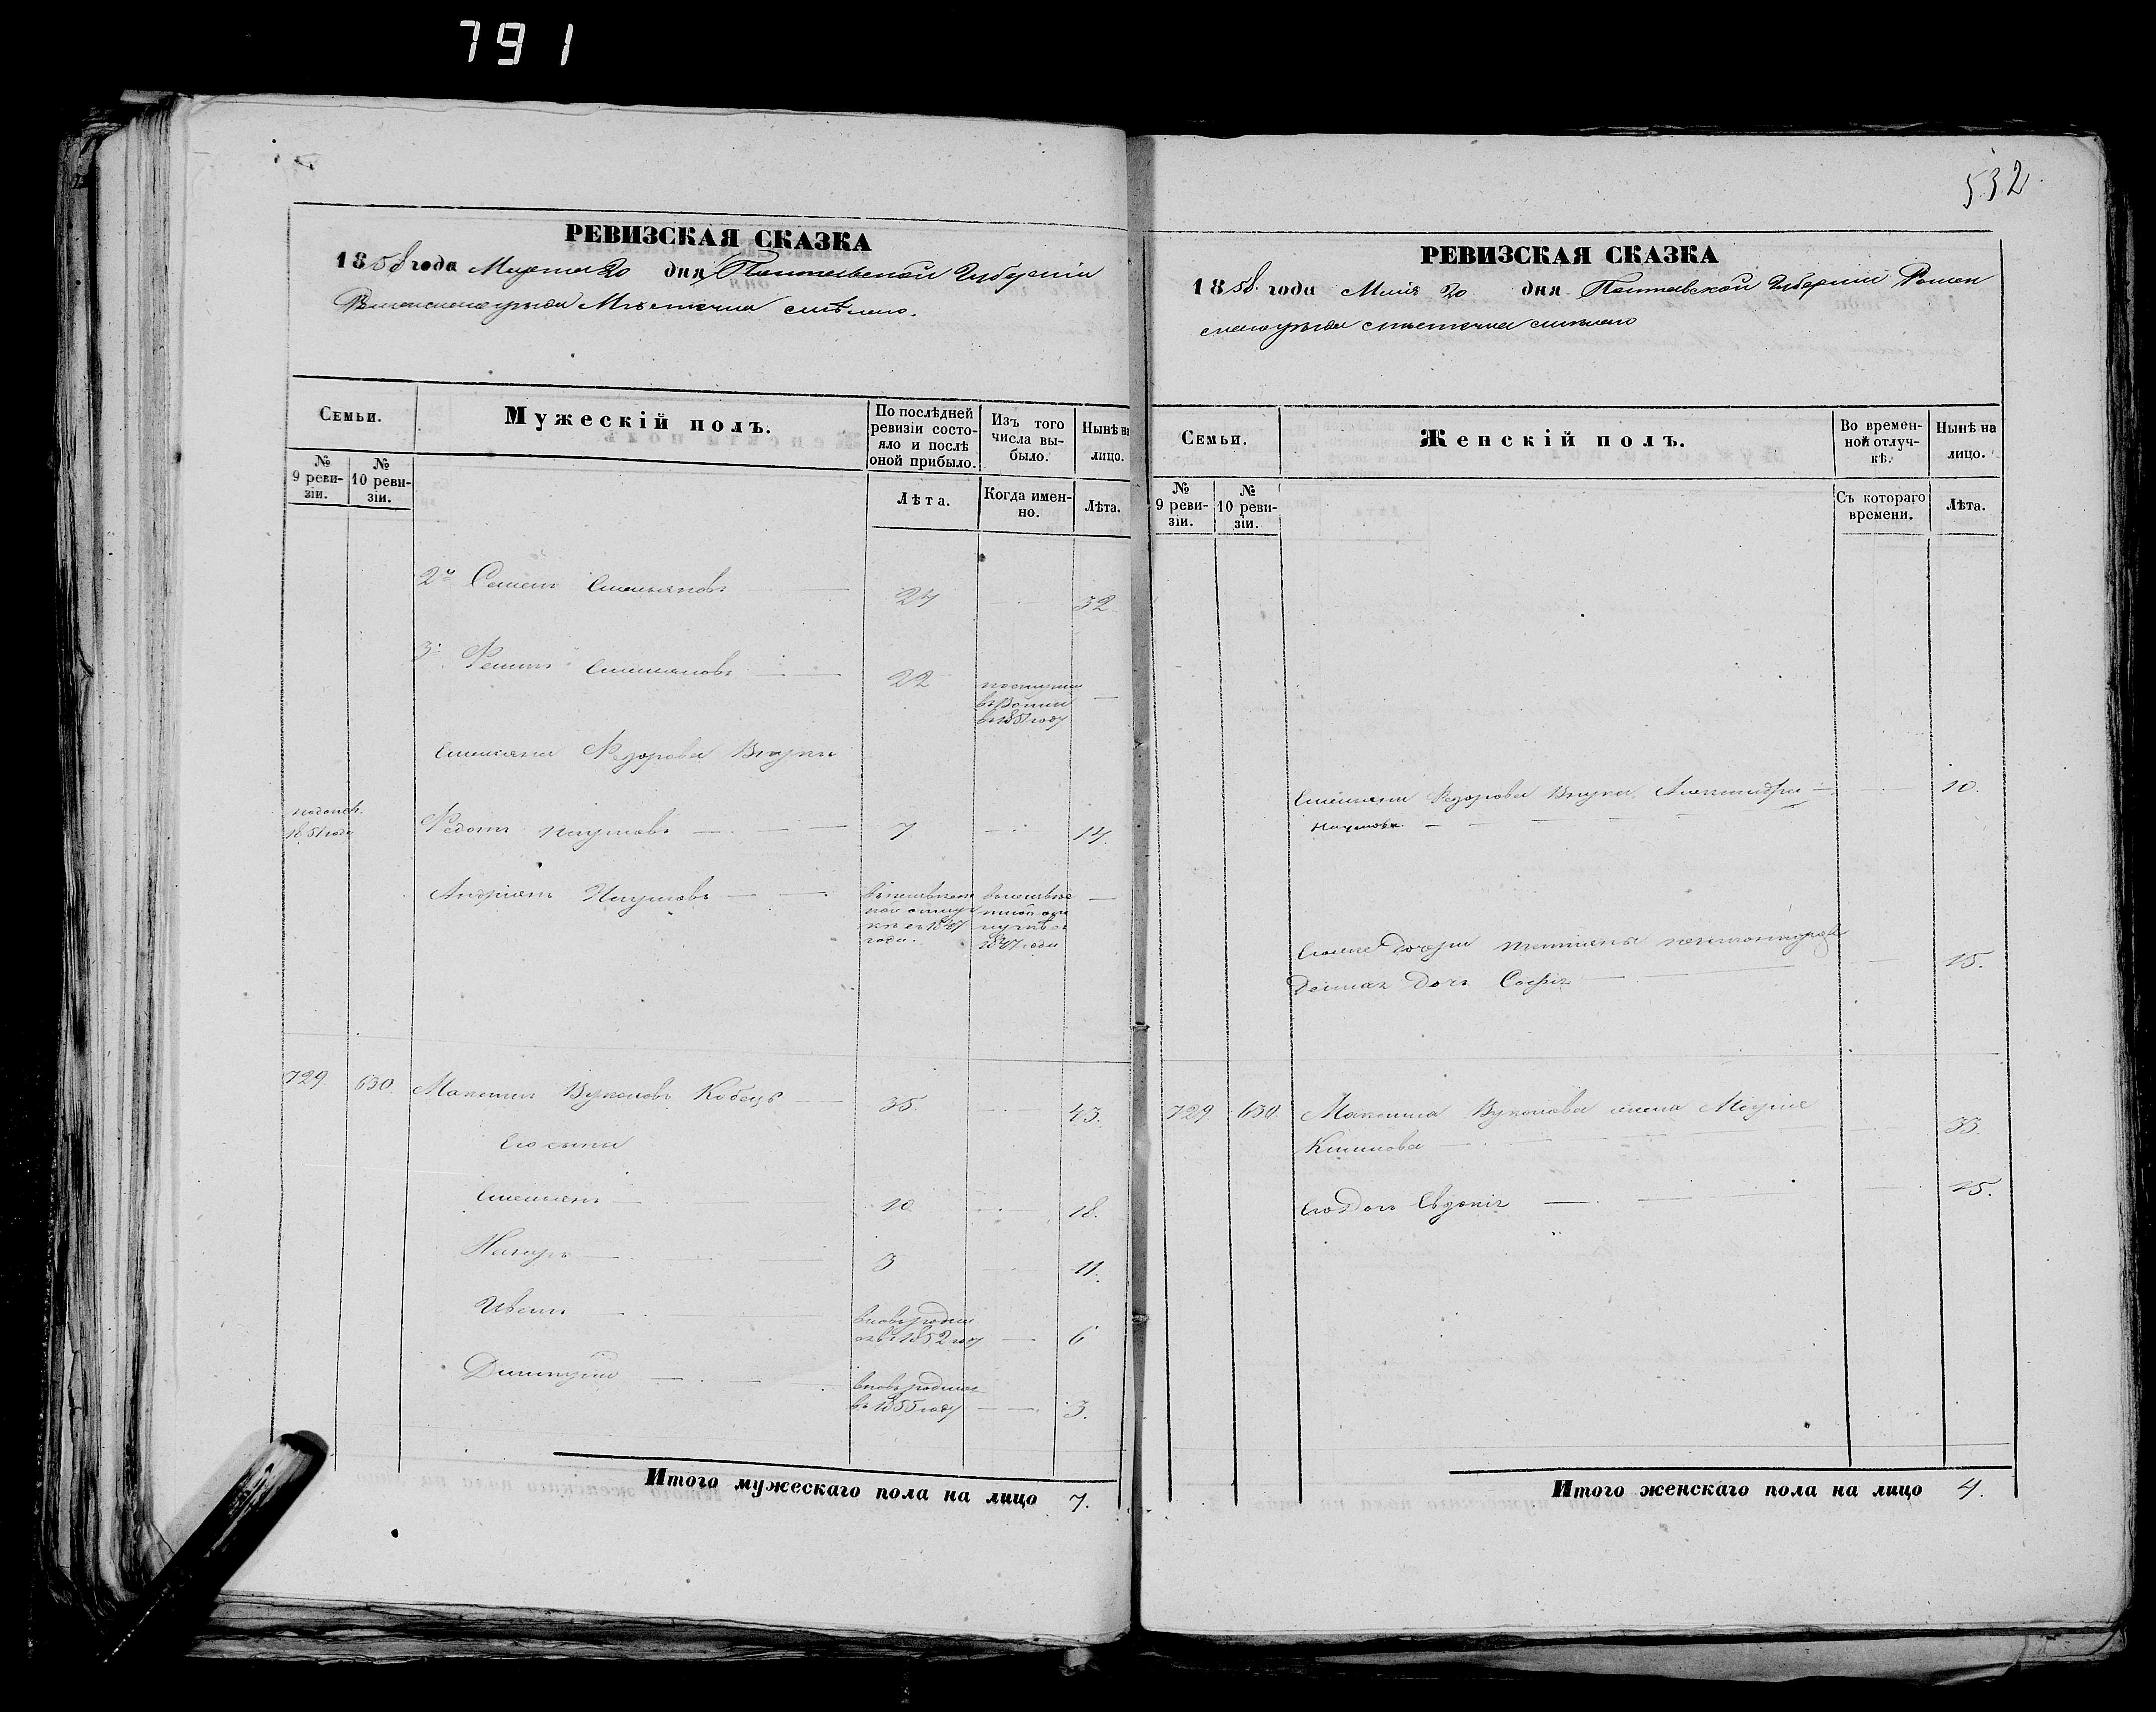 791
РЕВИЗСКАЯ СКАЗКА
1858 года Марта 20 дня Полтавской Губерніи
Роменскаго уѣзда Мѣстечка Смѣлаго.
Семьи.
Мужескій полъ.
По послѣдней ревизіи состояло и послѣ оной прибыло.
Изъ того числа выбыло.
Нынѣ на лицо.
№ 9 ревизіи.
№ 10 ревизіи.
Лѣта.
Когда именно.
Лѣта.
2й Семенъ Емельяновъ 24 32
3й Емельяновъ 22
въ 1851 году
Емельяна Федорова Внуки
1851 года
Федотъ Наумовъ 7 14.
Андріянъ Наумовъ
729. 630. Максимъ Вуколовъ Кобецъ 35. 43.
Его сыны
Емельянъ 10 18.
Назаръ 3 11.
Иванъ вновь родил
ся въ 1852 году 6
Димитрій вновь родился
въ 1855 году 3.
Итого мужескаго пола на лицо 7.
532
РЕВИЗСКАЯ СКАЗКА
1858 года 20 дня Полтавской Губерніи Ромен
скаго уѣзда мѣстечка Смѣлаго
Семьи.
Женскій полъ.
Во временной отлучкѣ.
Нынѣ на лицо.
№ 9 ревизіи.
№ 10 ревизіи.
Съ котораго времени.
Лѣта.
Емельяна Федорова Внука Александра 10.
Наумова
дочери Татьяны
дочь Софія 15.
729. 630. Максима Вуколова жена Марія
Климова 33.
Его Дочь Евдокія 15.
Итого женскаго пола на лицо 4.